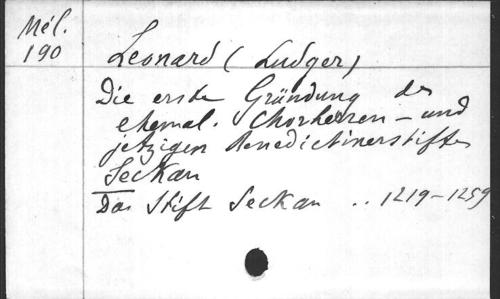 Mél.
190
Leonard (Ludger)
Die erste Gründung des
ehemal. Chorherren- und
jetzigen Benedictinerstiftes
Seckau
Das Stift Seckau .. 1219-1259